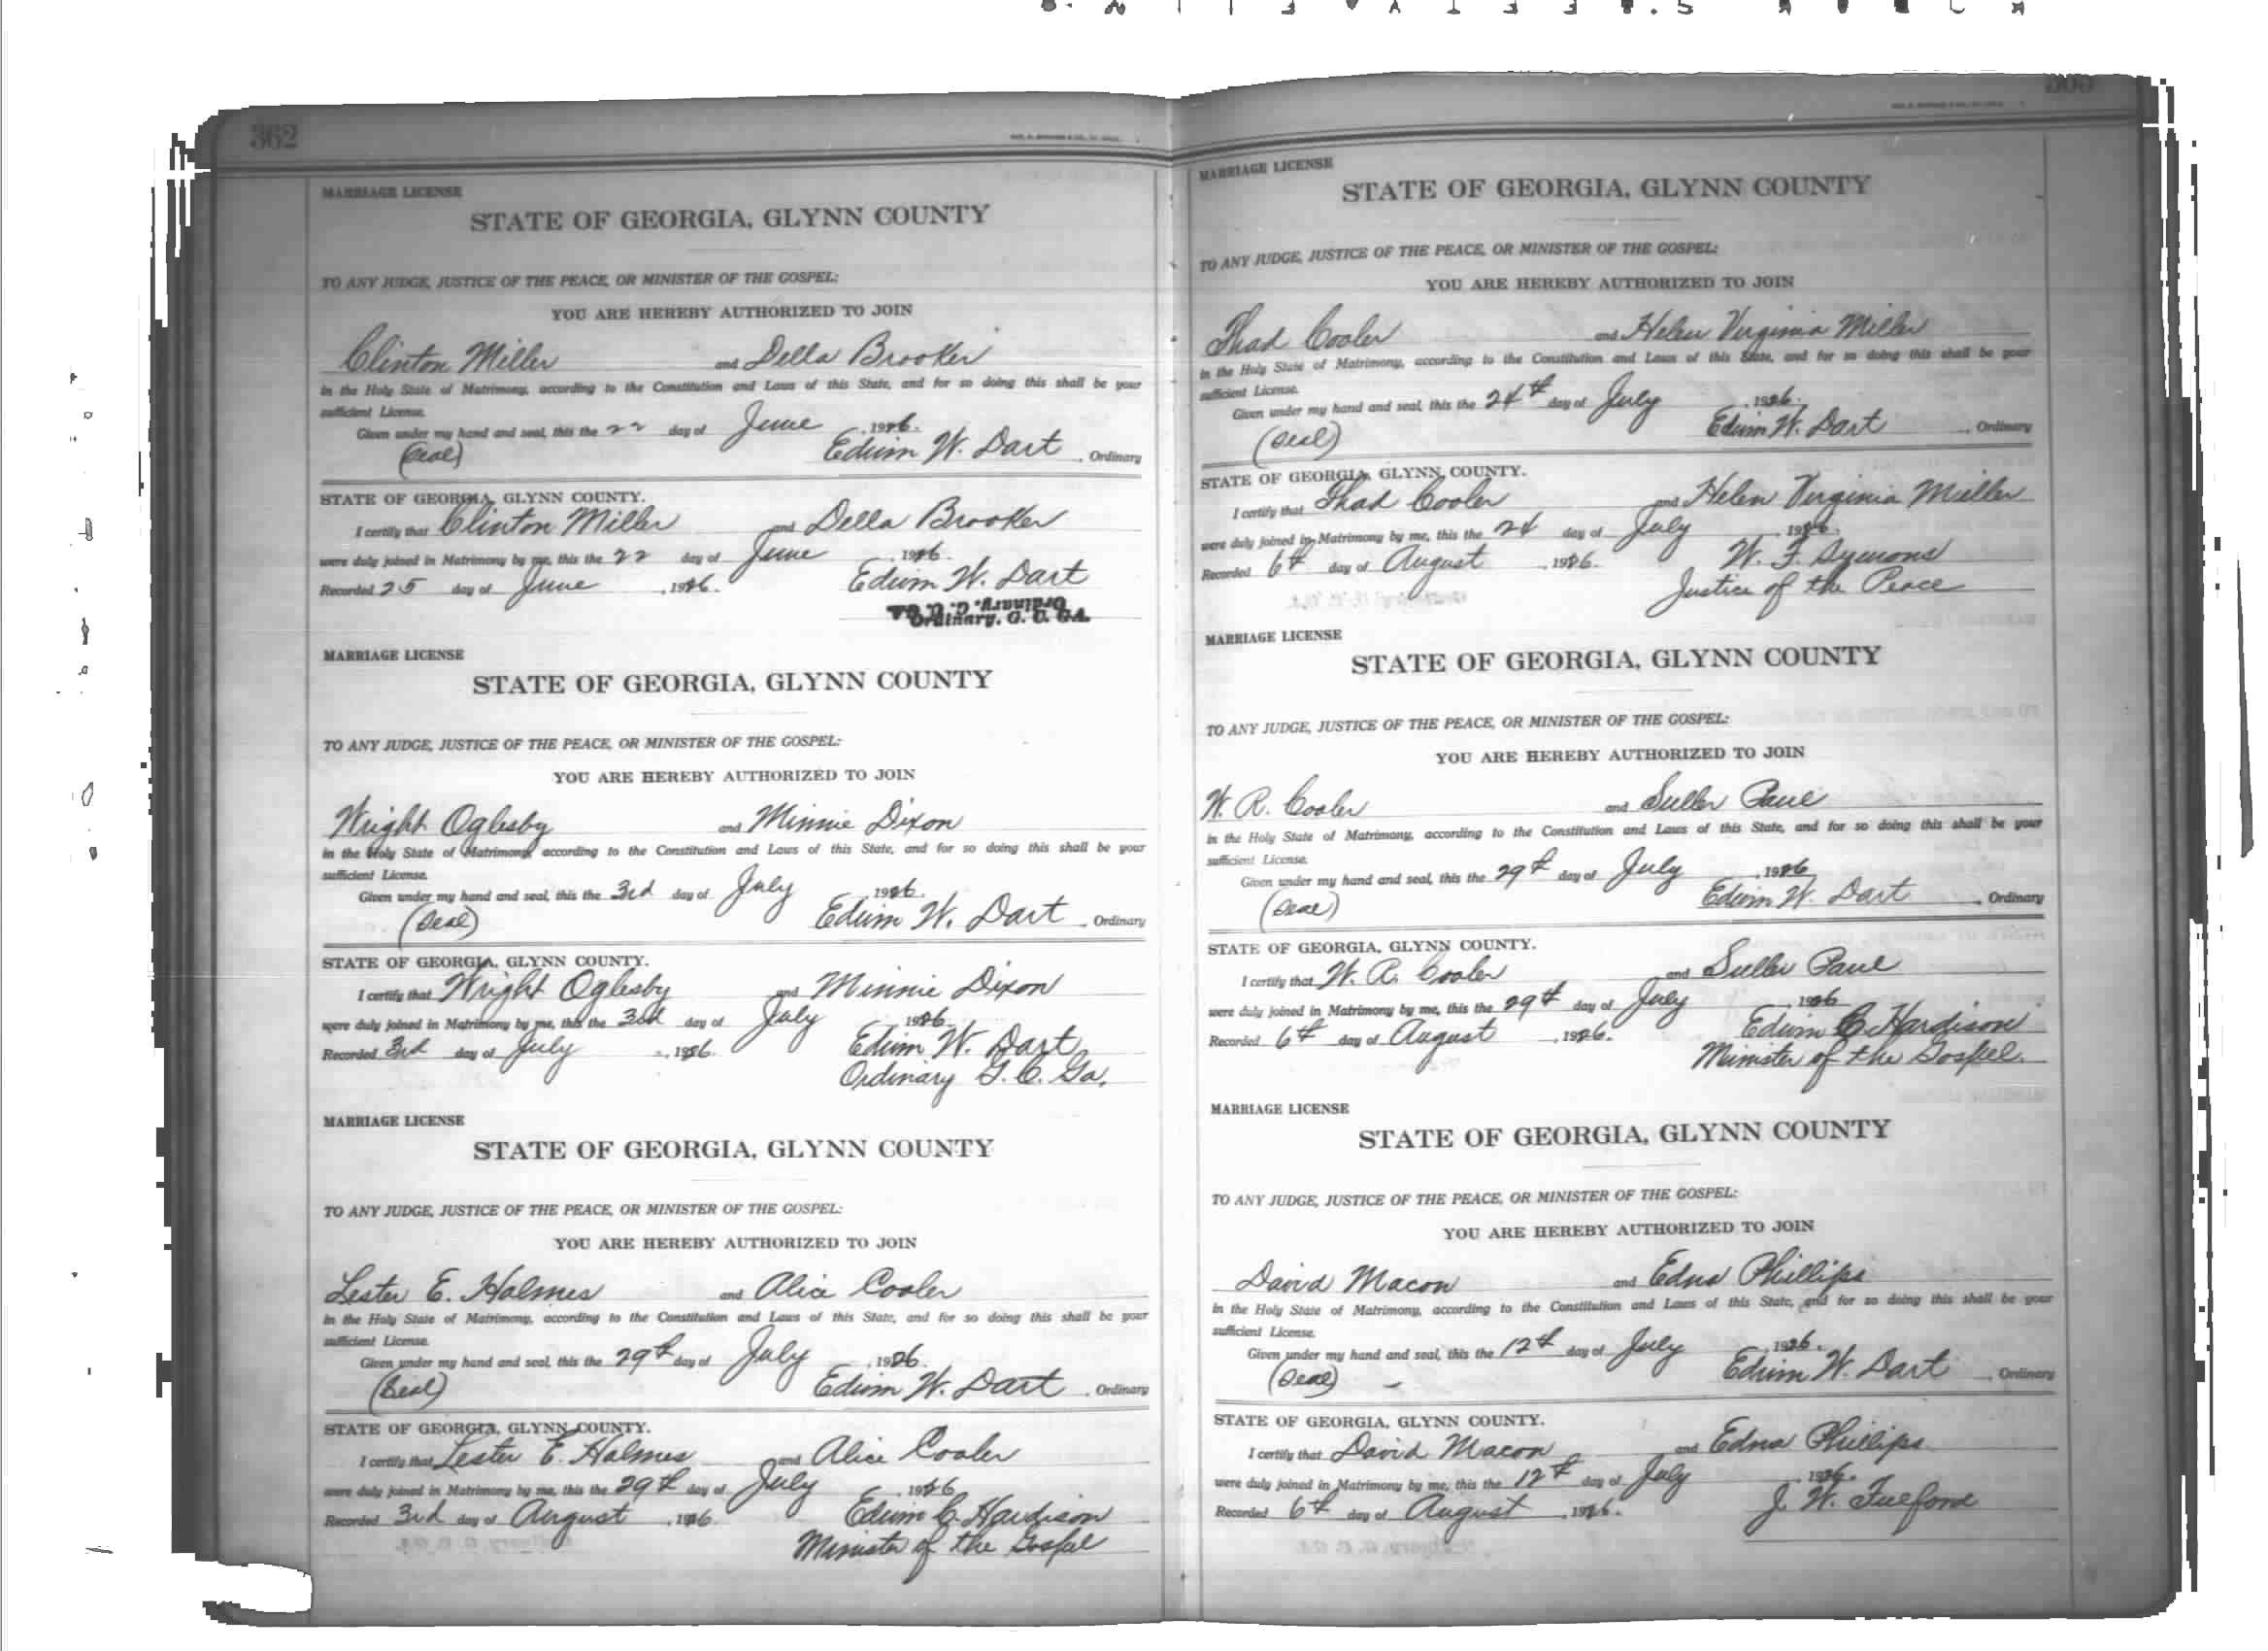 362
MARRIAGE LICENSE
STATE OF GEORGIA, GLYNN COUNTY
TO ANY JUDGE, JUSTICE OF THE PEACE, OR MINISTER OF THE GOSPEL:
YOU ARE HEREBY AUTHORIZED TO JOIN
Clinton Miller and Della Brooker
in the Holy State of Matrimony, according to the Constitution and Laws of this State, and for so doing this shall be your
sufficient License.
Given under my hand and seal, this the 22 day of June, 1926.
(Seal) Edwin W. Dart, Ordinary
STATE OF GEORGIA, GLYNN COUNTY.
I certify that Clinton Miller and Della Brooker
were duly joined in Matrimony by me, this the 22 day of June, 1926.
Recorded 25 day of June, 1926. Edwin W. Dart
Ordinary, G. C. GA.
MARRIAGE LICENSE
STATE OF GEORGIA, GLYNN COUNTY
TO ANY JUDGE, JUSTICE OF THE PEACE, OR MINISTER OF THE GOSPEL:
YOU ARE HEREBY AUTHORIZED TO JOIN
Wright Oglesby and Minnie Dixon
in the Holy State of Matrimony, according to the Constitution and Laws of this State, and for so doing this shall be your
sufficient License.
Given under my hand and seal, this the 3rd day of July, 1926.
(Seal) Edwin W. Dart, Ordinary
STATE OF GEORGIA, GLYNN COUNTY.
I certify that Wright Oglesby and Minnie Dixon
were duly joined in Matrimony by me, this the 3rd day of July, 1926.
Recorded 3rd day of July, 1926. Edwin W. Dart
Ordinary G. C. Ga.
MARRIAGE LICENSE
STATE OF GEORGIA, GLYNN COUNTY
TO ANY JUDGE, JUSTICE OF THE PEACE, OR MINISTER OF THE GOSPEL:
YOU ARE HEREBY AUTHORIZED TO JOIN
Lester E. Holmes and Alice Cooler
in the Holy State of Matrimony, according to the Constitution and Laws of this State, and for so doing this shall be your
sufficient License.
Given under my hand and seal, this the 29th day of July, 1926.
(Seal) Edwin W. Dart, Ordinary
STATE OF GEORGIA, GLYNN COUNTY.
I certify that Lester E. Holmes and Alice Cooler
were duly joined in Matrimony by me, this the 29th day of July, 1926
Recorded 3rd day of August, 1926. Edwin C. Hardison
Minister of the Gospel
MARRIAGE LICENSE
STATE OF GEORGIA, GLYNN COUNTY
TO ANY JUDGE, JUSTICE OF THE PEACE, OR MINISTER OF THE GOSPEL:
YOU ARE HEREBY AUTHORIZED TO JOIN
Thad Cooler and Helen Virginia Miller
in the Holy State of Matrimony, according to the Constitution and Laws of this State, and for so doing this shall be your
sufficient License.
Given under my hand and seal, this the 24th day of July, 1926.
(Seal) Edwin W. Dart, Ordinary
STATE OF GEORGIA, GLYNN COUNTY.
I certify that Thad Cooler and Helen Virginia Miller
were duly joined in Matrimony by me, this the 24 day of July, 1926.
Recorded 6th day of August, 1926. W. F. Symons
Justice of the Peace
MARRIAGE LICENSE
STATE OF GEORGIA, GLYNN COUNTY
TO ANY JUDGE, JUSTICE OF THE PEACE, OR MINISTER OF THE GOSPEL:
YOU ARE HEREBY AUTHORIZED TO JOIN
W. R. Cooler and Suller Paul
in the Holy State of Matrimony, according to the Constitution and Laws of this State, and for so doing this shall be your
sufficient License.
Given under my hand and seal, this the 29th day of July, 1926
(Seal) Edwin W. Dart, Ordinary
STATE OF GEORGIA, GLYNN COUNTY.
I certify that W. R. Cooler and Suller Paul
were duly joined in Matrimony by me, this the 29th day of July, 1926
Recorded 6th day of August, 1926. Edwin C. Hardison
Minister of the Gospel.
MARRIAGE LICENSE
STATE OF GEORGIA, GLYNN COUNTY
TO ANY JUDGE, JUSTICE OF THE PEACE, OR MINISTER OF THE GOSPEL:
YOU ARE HEREBY AUTHORIZED TO JOIN
David Macon and Edna Phillips
in the Holy State of Matrimony, according to the Constitution and Laws of this State, and for so doing this shall be your
sufficient License.
Given under my hand and seal, this the 12th day of July, 1926.
(Seal) Edwin W. Dart, Ordinary
STATE OF GEORGIA, GLYNN COUNTY.
I certify that David Macon and Edna Phillips
were duly joined in Matrimony by me, this the 12th day of July, 1926.
Recorded 6th day of August, 1926. J. W. Fulford